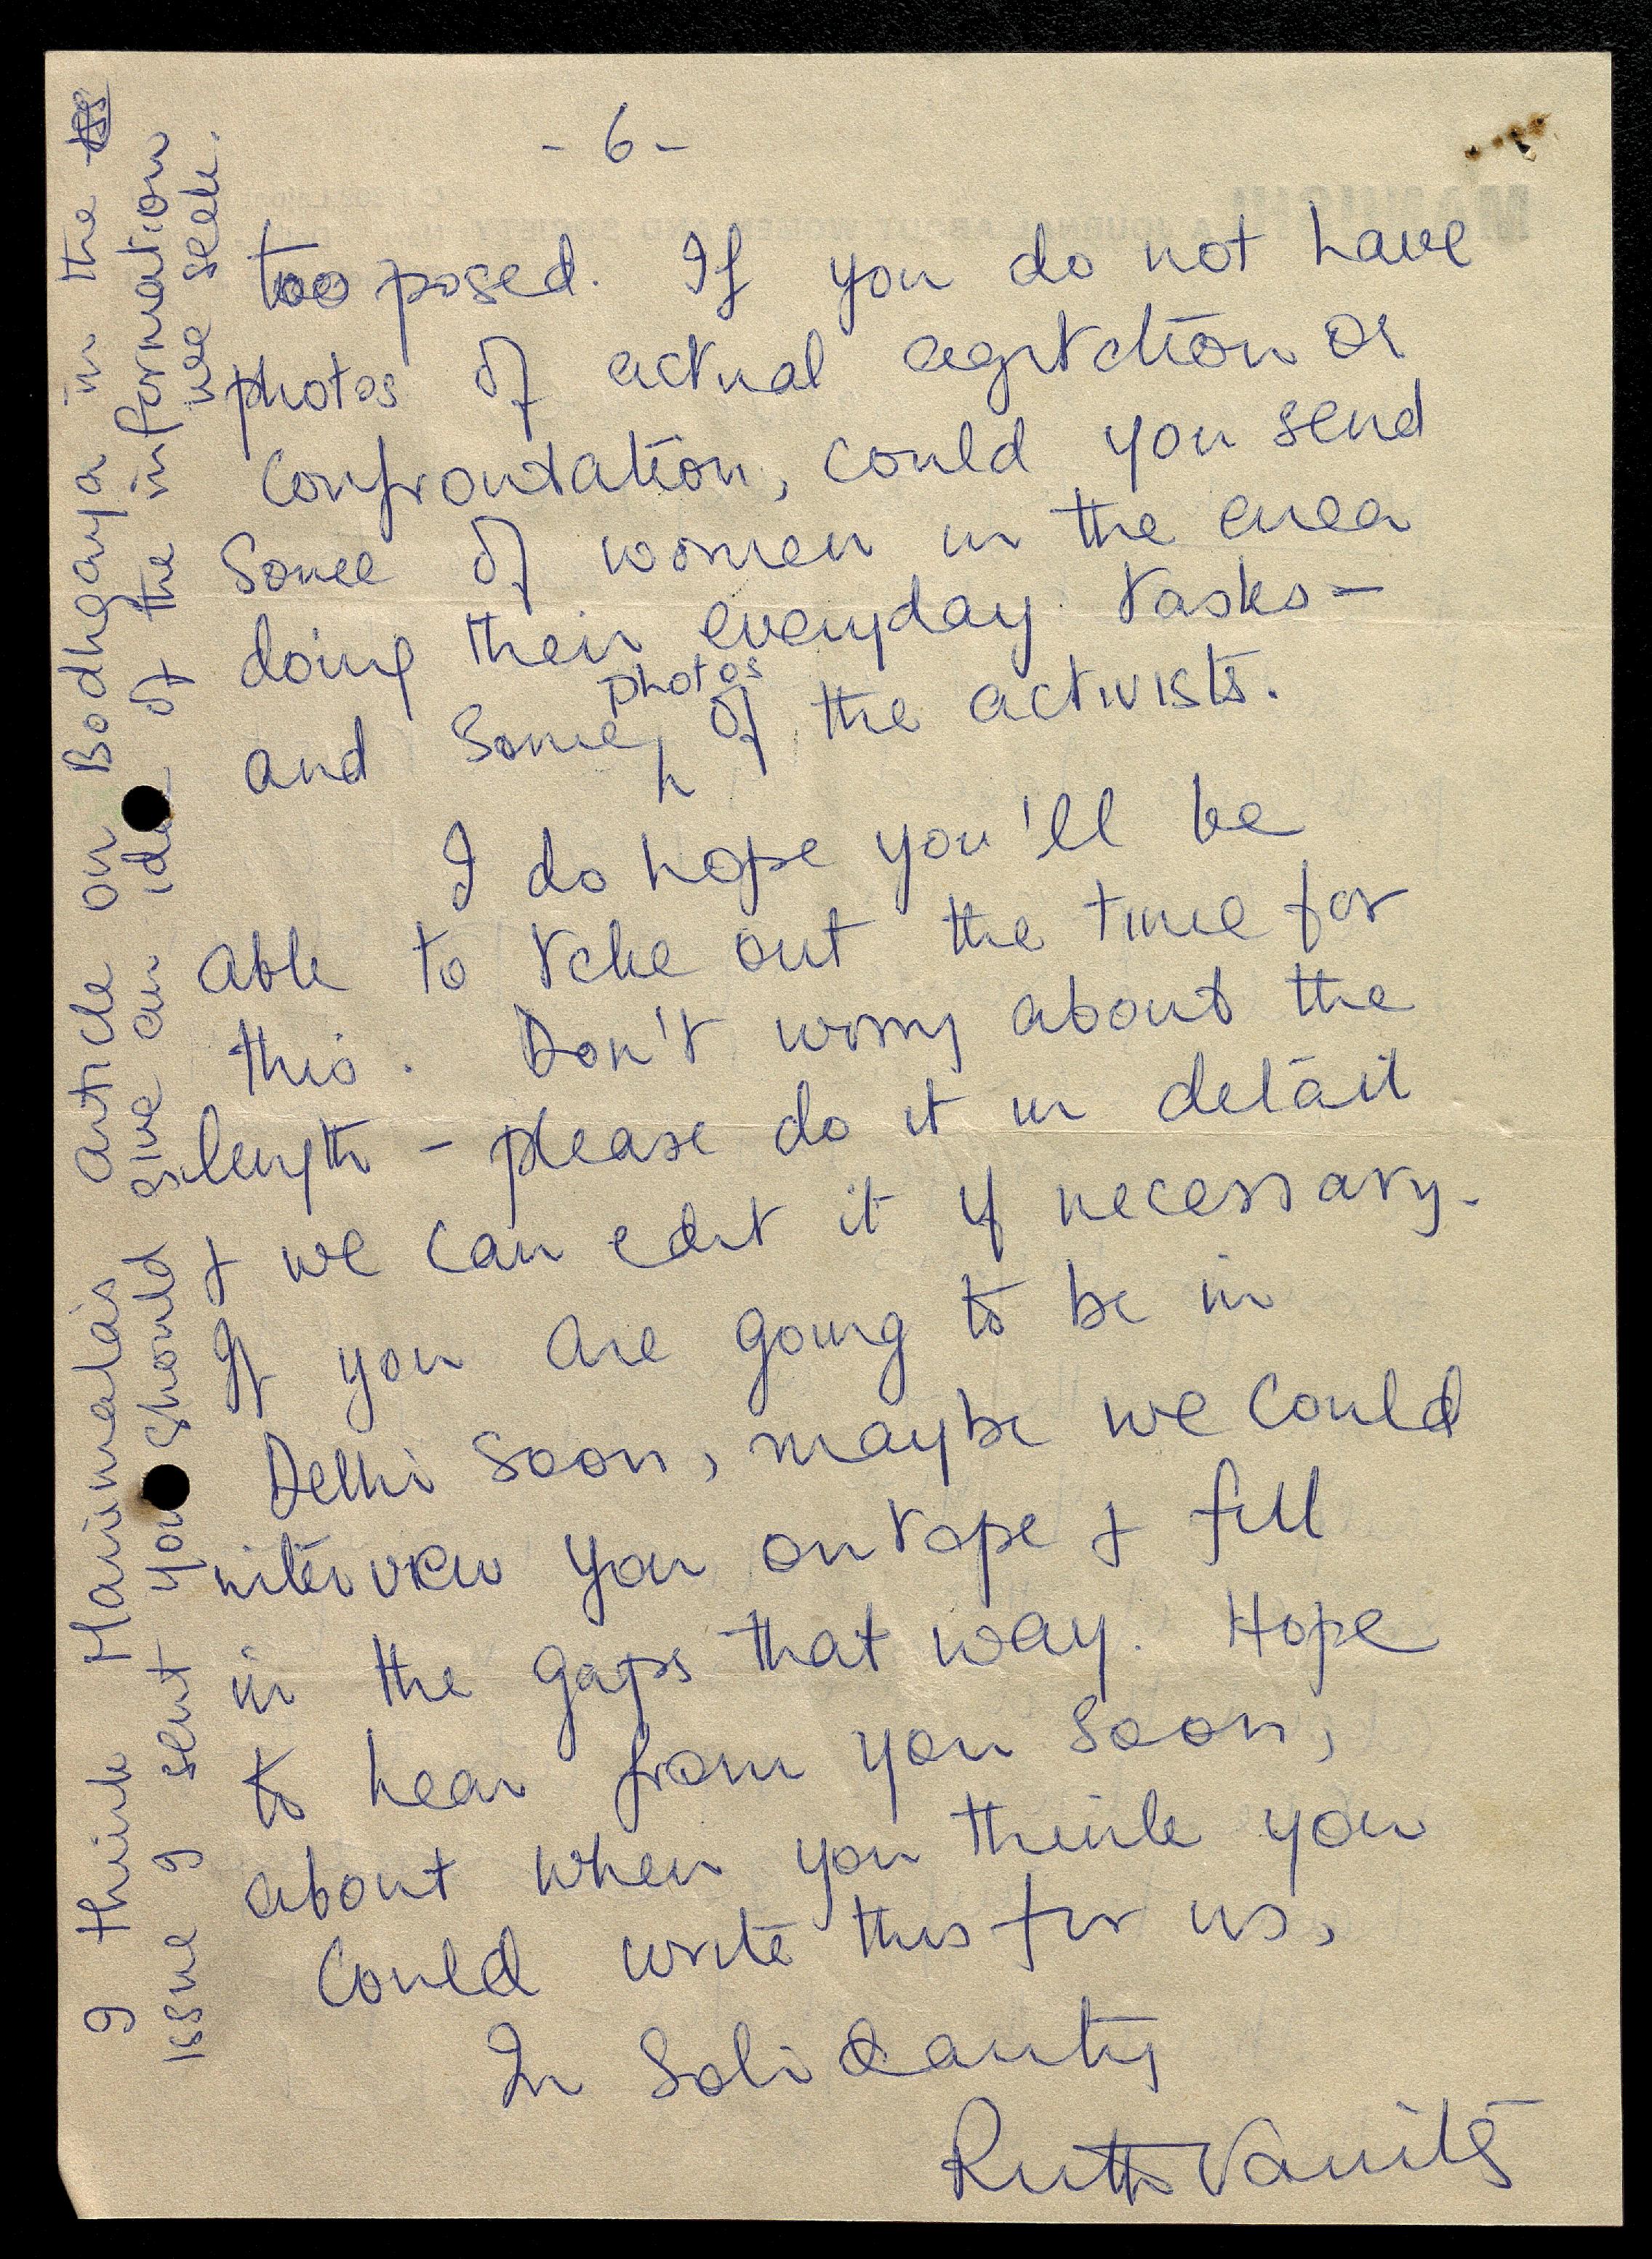 - 6 -
too posed. If you do not have
photos of actual agitation or
confrontation, could you send
some of women in the area
doing their everyday tasks -
photos
and some, of the activists.
I do hope you'll be
able to take out the time for
this. Don't worry about the
length - please do it in detail
& we can edit it if necessary.
If you are going to be in
Delhi soon, maybe we could
interview you on tape & fill
in the gaps that way. Hope
to hear from you soon,
about when you think you
could write this for us,
In Solidarity
Ruth Vanita
I think Manimala's article on Bodhgaya in the
issue I sent you should give an idea of the information
we seek.